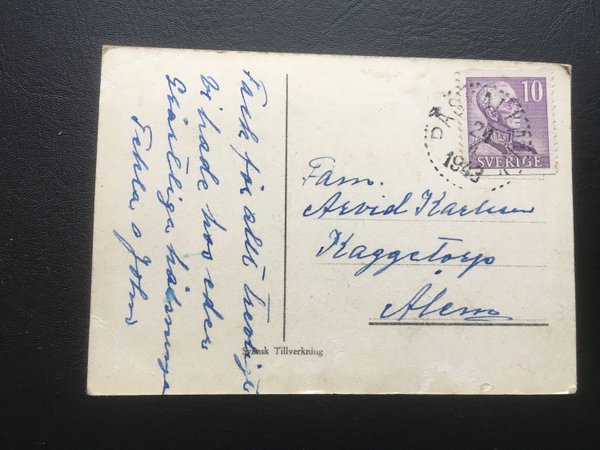 Tack för allt trevligt
Vi hade hos eder
Hjärtliga hälsningar
Tekla o John
10
SVERIGE
1943
Fam.
Arvid Karlsson
Kaggetorp
Ålem
Svensk Tillverkning